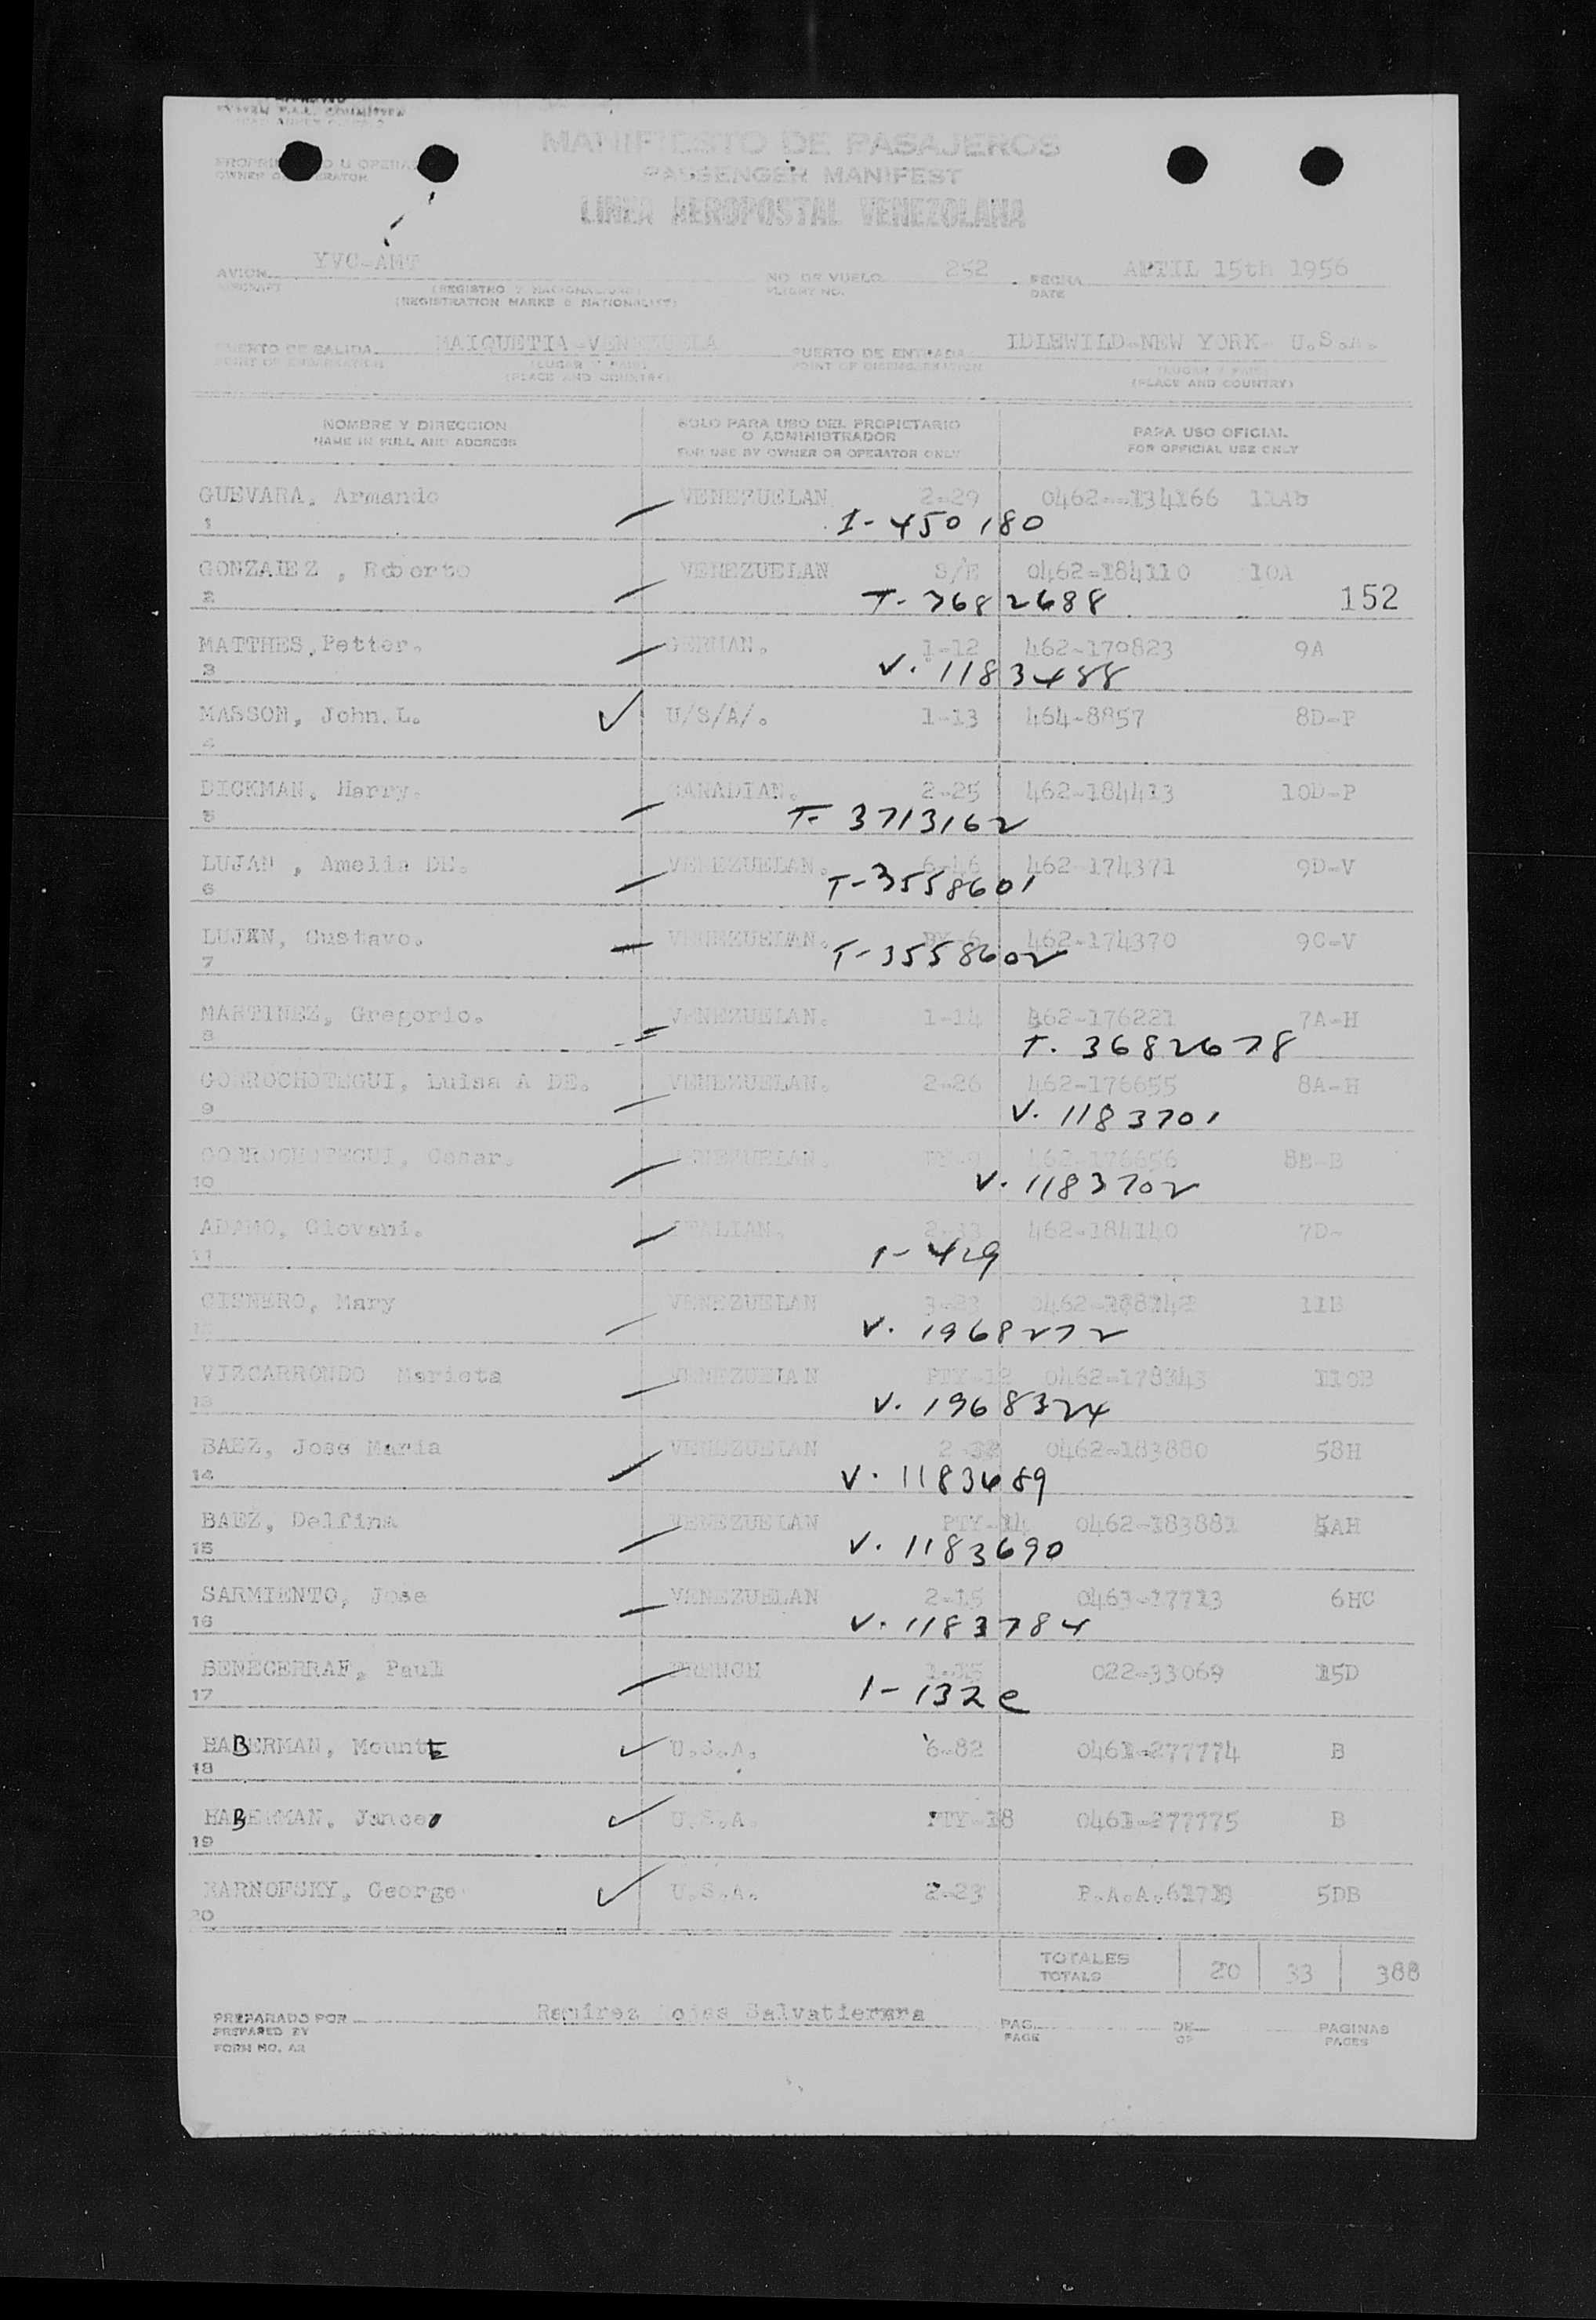 APPROVED
MANIFIESTO DE PASAJEROS
PASSENGER MANIFEST
LINEA AEROPOSTAL VENEZOLANA
AVION YVC-AMT NO. DE VUELO 252 FECHA APTIL 15th 1956
AIRCRAFT (REGISTRO Y NACIONALIDAD) FLIGHT NO. DATE
(REGISTRATION MARKS & NATIONALITY)
PUERTO DE SALIDA MAIQUETIA-VENEZUELA PUERTO DE ENTRADA IDLEWILD-NEW YORK- U.S.A.
POINT OF EMBARKATION (LUGAR Y PAIS) POINT OF DISEMBARKATION (LUGAR Y PAIS)
(PLACE AND COUNTRY) (PLACE AND COUNTRY)
NOMBRE Y DIRECCION SOLO PARA USO DEL PROPIETARIO O ADMINISTRADOR PARA USO OFICIAL
NAME IN FULL AND ADDRESS FOR USE BY OWNER OR OPERATOR ONLY FOR OFFICIAL USE ONLY
GUEVARA, Armando VENEZUELAN 2-29 0462--134166 11Ab
1 1-450180
GONZALEZ , Roberto VENEZUELAN S/E 0462-184110 10A
2 T-3682688 152
MATTHES, Petter. GERMAN. 1-12 462-179823 9A
3 V. 1183488
MASSON, John.L. U/S/A/. 1-13 464-8857 8D-P
4
DICKMAN, Harry. CANADIAN. 2-25 462-184413 10D-P
5 T- 3713162
LUJAN , Amelia DE. VENEZUELAN. 6-46 462-174371 9D-V
6 T-3558601
LUJAN, Gustavo. VENEZUELAN. 462-174370 9C-V
7 T-3558602
MARTINEZ, Gregorio. VENEZUELAN. 1-14 462-176221 7A-H
8 T. 3682678
GORROCHOTEGUI, Luisa A DE. VENEZUELAN. 2-26 462-176655 8A-H
9 V. 1183701
GORROCHOTEGUI, Cesar. VENEZUELAN. 462-176656 8B-B
10 V. 1183702
ADAMO, Giovani. ITALIAN. 462-184140 7D-
11 1-429
CISNERO, Mary VENEZUELAN 3-23 11B
12 V. 1968272
VIZCARRONDO Marieta VENEZUELAN PTY-12 0462-178343
13 V. 1968324
BAEZ, Jose Maria VENEZUELAN 0462-183880 58H
14 V. 1183689
BAEZ, Delfina VENEZUELAN PTY-14 0462-183881 5AH
15 V. 1183690
SARMIENTO, Jose VENEZUELAN 2-15 0463-17713 6HC
16 V. 1183784
BENECERRAF, Paul FRENCH 1-15 022-33069 15D
17 1-132e
HABERMAN, MountE U.S.A. 6-82 0461-277774 B
18
HABERMAN, Jance U.S.A. PTY-18 0461-277775 B
19
KARNOFSKY, George U.S.A. 2-23 P.A.A.61719 5DB
20
TOTALES 20 33 388
TOTALS
PREPARADO POR Ramirez Rojas Salvatierra PAG. DE PAGINAS
PREPARED BY PAGE OF PAGES
FORM NO. AR